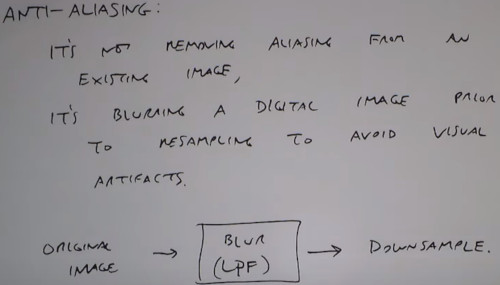 ANTI-ALIASING:
IT'S NOT REMOVING ALIASING FROM AN
EXISTING IMAGE,
IT'S BLURRING A DIGITAL IMAGE PRIOR
TO RESAMPLING TO AVOID VISUAL
ARTIFACTS.
ORIGINAL IMAGE → BLUR (LPF) → DOWNSAMPLE.